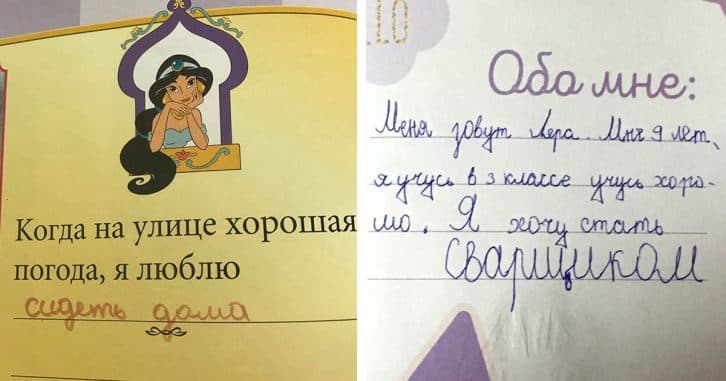 Когда на улице хорошая
погода, я люблю
сидеть дома
Обо мне:
Меня зовут Лера. Мне 9 лет,
я учусь в 3 классе учусь хоро-
шо. Я хочу стать
сварщиком